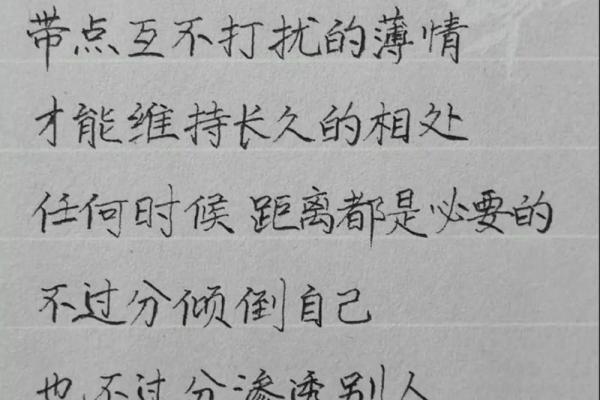 带点互不打扰的薄情
才能维持长久的相处
任何时候 距离都是必要的
不过分倾倒自己
也不过分渗透别人